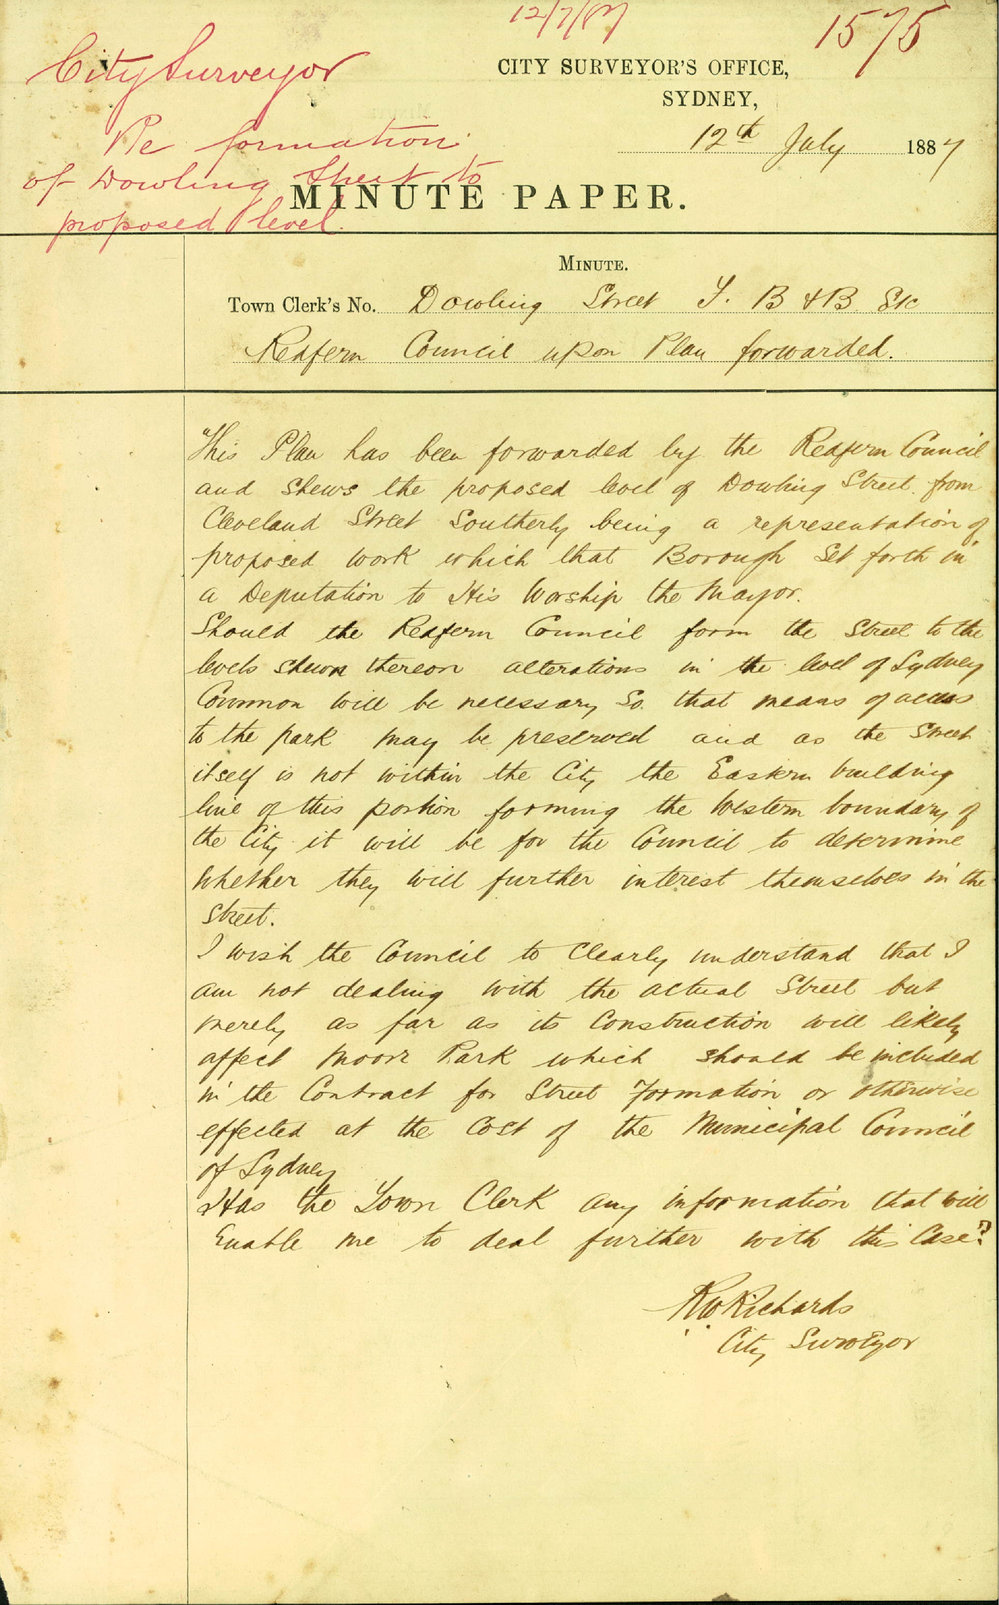 12/7/87
1575
City Surveyor
Re formation
of Dowling Street to
proposed level.
CITY SURVEYOR'S OFFICE,
SYDNEY,
12th July 1887
MINUTE PAPER.
MINUTE.
Town Clerk's No. Dowling Street T. B & B. Etc
Redfern Council upon Plan forwarded.
This Plan has been forwarded by the Redfern Council
and shews the proposed level of Dowling Street from
Cleveland Street Southerly being a representation of
proposed work which that Borough set forth in
a Deputation to His Worship the Mayor.
Should the Redfern Council form the Street to the
levels shewn thereon alterations in the level of Sydney
Common will be necessary so that means of access
to the park may be preserved and as the Street
itself is not within the City the Eastern building
line of this portion forming the Western boundary of
the City it will be for the Council to determine
whether they will further interest themselves in the
Street.
I wish the Council to clearly understand that I
am not dealing with the actual Street but
merely as far as its Construction will likely
affect Moore Park which should be included
in the Contract for Street Formation or otherwise
effected at the Cost of the Municipal Council
of Sydney
Has the Town Clerk any information that will
Enable me to deal further with this Case?
RW Richards
City Surveyor